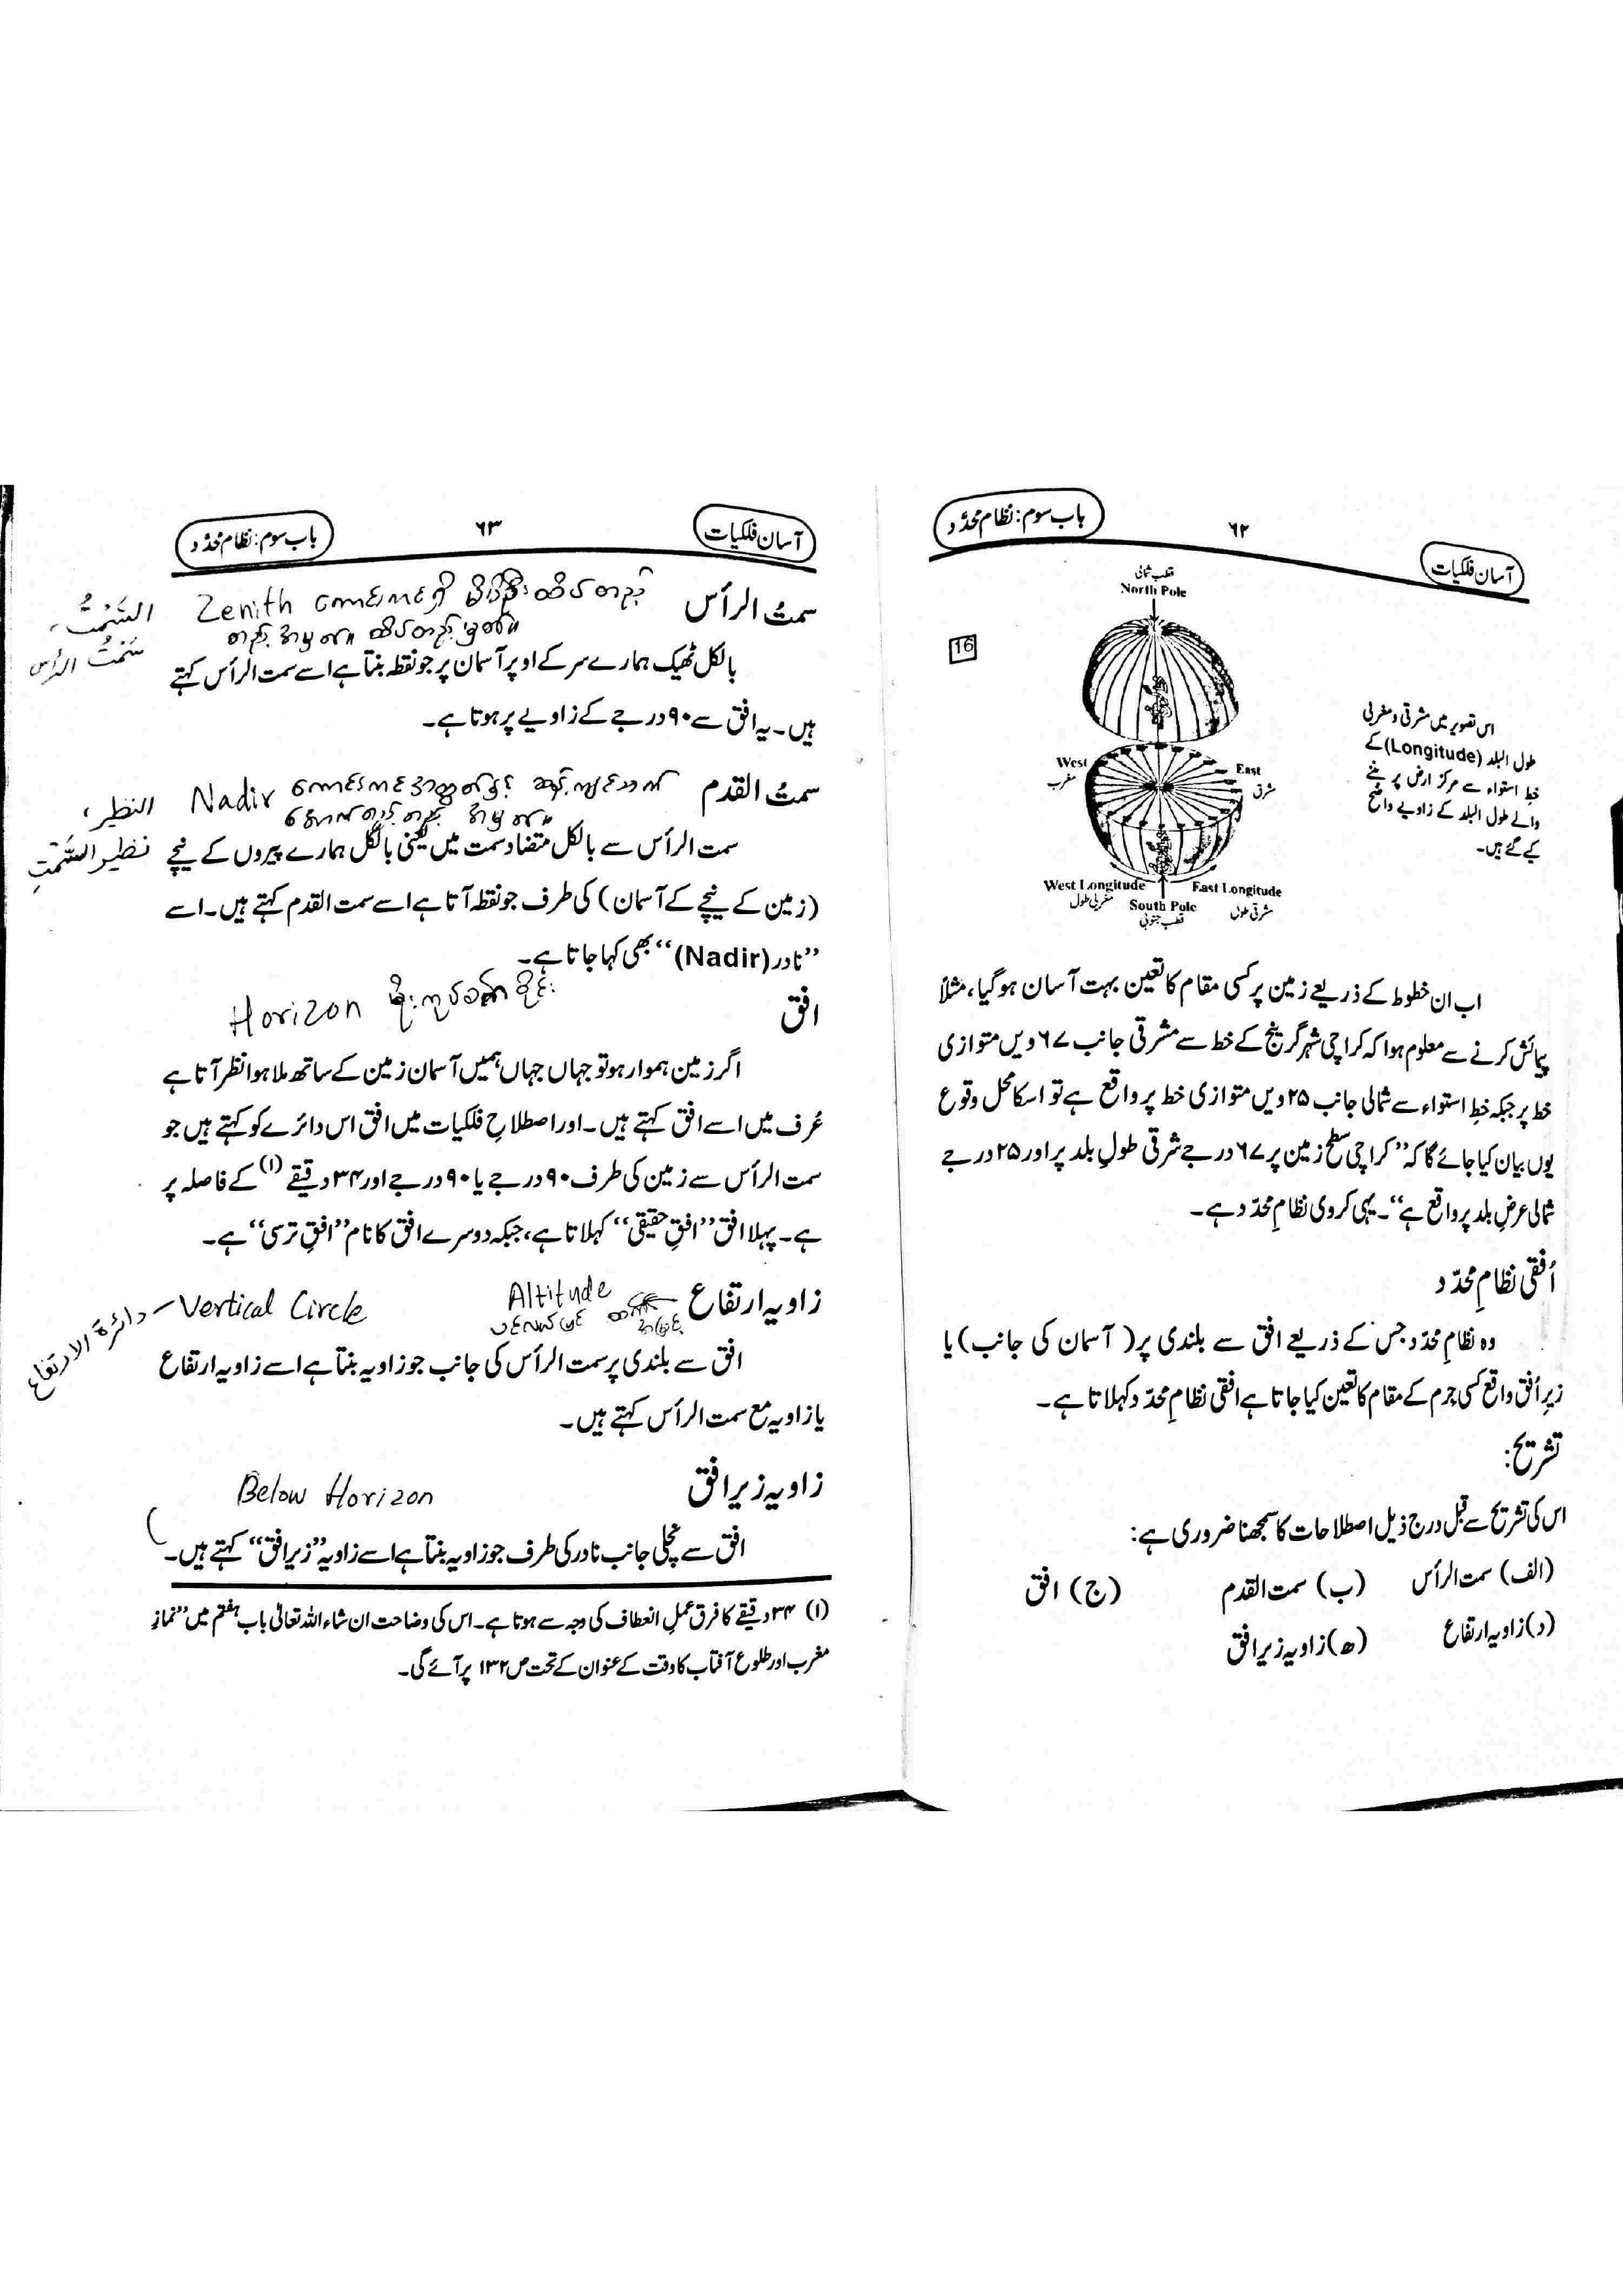 باب سوم: نظام محدّد
۶۲
آسان فلکیات
قطب شمالی
North Pole
16
West
مغرب
East
مشرق
West Longitude
مغربی طول
South Pole
قطب جنوبی
East Longitude
مشرقی طول
اس تصویر میں مشرقی و مغربی
طول البلد (Longitude) کے
خطِ استواء سے مرکز ارض پر بنے
والے طول البلد کے زاویے واضح
کیے گئے ہیں۔
اب ان خطوط کے ذریعے زمین پر کسی مقام کا تعین بہت آسان ہو گیا، مثلاً
پیمائش کرنے سے معلوم ہوا کہ کراچی شہر گرینچ کے خط سے مشرقی جانب ۶۷ ویں متوازی
خط پر جبکہ خطِ استواء سے شمالی جانب ۲۵ ویں متوازی خط پر واقع ہے تو اسکا محل وقوع
یوں بیان کیا جائے گا کہ ”کراچی سطح زمین پر ۶۷ درجے شرقی طولِ بلد پر اور ۲۵ درجے
شمالی عرضِ بلد پر واقع ہے“۔ یہی کروی نظامِ محدّد ہے۔
اُفقی نظامِ محدّد
وہ نظامِ محدّد جس کے ذریعے افق سے بلندی پر (آسمان کی جانب) یا
زیرِ اُفق واقع کسی جرم کے مقام کا تعین کیا جاتا ہے افقی نظامِ محدّد کہلاتا ہے۔
تشریح:
اس کی تشریح سے قبل درج ذیل اصطلاحات کا سمجھنا ضروری ہے:
(الف) سمت الرأس (ب) سمت القدم (ج) افق
(د) زاویہ ارتفاع (ھ) زاویہ زیر افق
آسان فلکیات
۶۳
باب سوم: نظام محدّد
سمتُ الرأس Zenith ကောင်းကင်ရှိ ထိပ်တည့်
السَّمْتُ،
တည့် အမှတ်။ ထိပ်တည့်မှတ်။
سَمْتُ الرأس
بالکل ٹھیک ہمارے سر کے اوپر آسمان پر جو نقطہ بنتا ہے اسے سمت الرأس کہتے
ہیں۔ یہ افق سے ۹۰ درجے کے زاویے پر ہوتا ہے۔
سمتُ القدم Nadir ကောင်းကင်အထွတ်နှင့် ဆန့်ကျင်ဘက်
النظیر،
အောက်တည့်တည့် အမှတ်။
نظیر السَّمْتِ
سمت الرأس سے بالکل متضاد سمت میں یعنی بالکل ہمارے پیروں کے نیچے
(زمین کے نیچے کے آسمان) کی طرف جو نقطہ آتا ہے اسے سمت القدم کہتے ہیں۔ اسے
”نادر (Nadir)“ بھی کہا جاتا ہے۔
افق Horizon မိုးကုပ်စက်ဝိုင်း
اگر زمین ہموار ہو تو جہاں جہاں ہمیں آسمان زمین کے ساتھ ملا ہوا نظر آتا ہے
عُرف میں اسے افق کہتے ہیں۔ اور اصطلاحِ فلکیات میں افق اس دائرے کو کہتے ہیں جو
سمت الرأس سے زمین کی طرف ۹۰ درجے یا ۹۰ درجے اور ۳۴ دقیقے (۱) کے فاصلہ پر
ہے۔ پہلا افق ”افقِ حقیقی“ کہلاتا ہے، جبکہ دوسرے افق کا نام ”افقِ ترسی“ ہے۔
زاویہ ارتفاع Altitude
Vertical Circle – دائرة الارتفاع
ပင်လယ်မြင် အမြင့်
افق سے بلندی پر سمت الرأس کی جانب جو زاویہ بنتا ہے اسے زاویہ ارتفاع
یا زاویہ مع سمت الرأس کہتے ہیں۔
زاویہ زیر افق Below Horizon
افق سے نچلی جانب نادر کی طرف جو زاویہ بنتا ہے اسے زاویہ ”زیر افق“ کہتے ہیں۔
(۱) ۳۴ دقیقے کا فرق عمل انعطاف کی وجہ سے ہوتا ہے۔ اس کی وضاحت ان شاء اللہ تعالٰی باب ہفتم میں ”نمازِ
مغرب اور طلوع آفتاب کا وقت کے عنوان کے تحت ص ۱۳۲ پر آئے گی۔